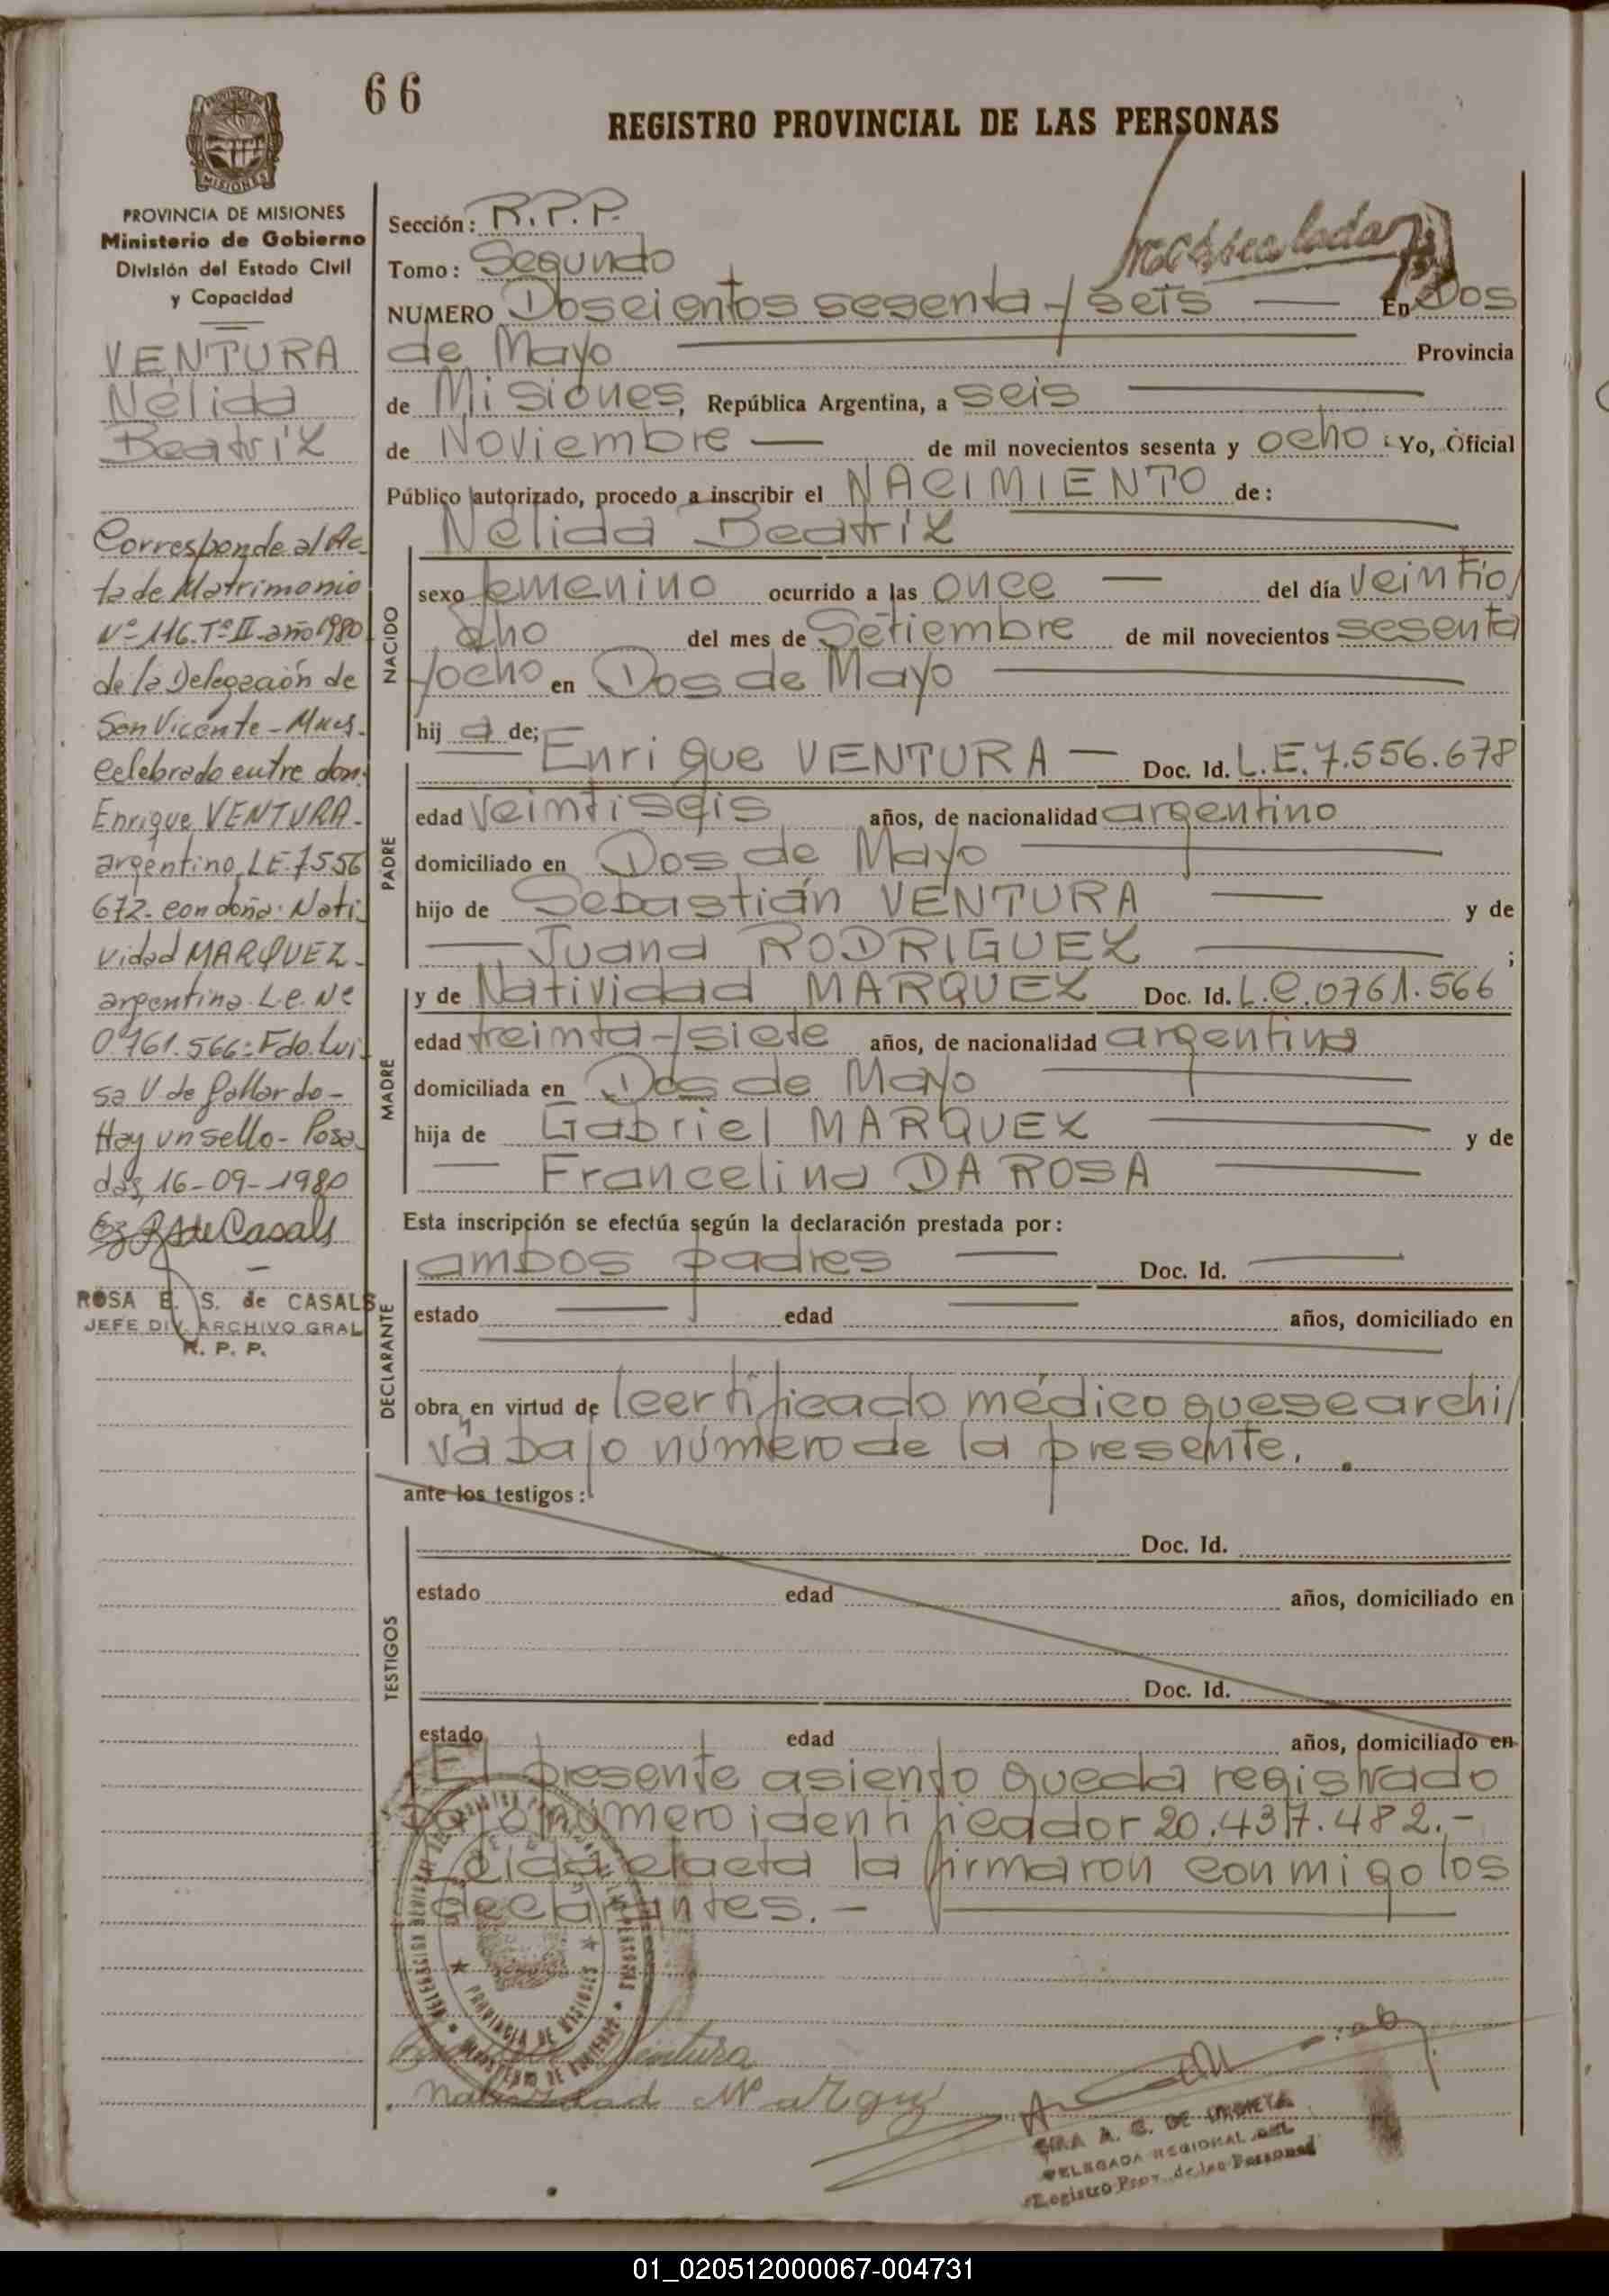 66
REGISTRO PROVINCIAL DE LAS PERSONAS
MISIONES
PROVINCIA DE MISIONES
Ministerio de Gobierno
División del Estado Civil
y Capacidad
VENTURA
Nélida
Beatriz
Corresponde al Ac-
ta de Matrimonio
Nº 116. Tº II-año 1980
de la Delegación de
San Vicente - Mnes.
celebrado entre don:
Enrique VENTURA-
argentino, L.E. 7556
672- con doña: Nati-
vidad MARQUEZ-
argentina L.C. Nº
0761.566: Fdo. Lui-
sa V de Gallardo-
Hay un sello- Posa-
das, 16-09-1980
de Casals
ROSA E. S. de CASALS
JEFE DIV. ARCHIVO GRAL
R. P. P.
Sección: R.P.P.
Tomo: Segundo
NUMERO Doscientos sesenta y seis — En Dos
de Mayo Provincia
de Misiones, República Argentina, a seis
de Noviembre — de mil novecientos sesenta y ocho: Yo, Oficial
Público autorizado, procedo a inscribir el NACIMIENTO de:
Nélida Beatriz
NACIDO
sexo femenino ocurrido a las once — del día veintio/
cho del mes de Setiembre de mil novecientos sesenta
yocho en Dos de Mayo
hij a de;
PADRE
Enrique VENTURA — Doc. Id. L.E. 7.556.678
edad veintiseis años, de nacionalidad argentino
domiciliado en Dos de Mayo
hijo de Sebastián VENTURA — y de
— Juana RODRIGUEZ — ;
MADRE
y de Natividad MARQUEZ Doc. Id. L.C. 0761.566
edad treinta y siete años, de nacionalidad argentina
domiciliada en Dos de Mayo
hija de Gabriel MARQUEZ — y de
— Francelina DA ROSA —
Esta inscripción se efectúa según la declaración prestada por:
DECLARANTE
ambos padres — Doc. Id. —
estado — edad — años, domiciliado en
obra en virtud de lcertificado médico que se archi/
va bajo número de la presente.
ante los testigos:
TESTIGOS
Doc. Id.
estado edad años, domiciliado en
Doc. Id.
estado edad años, domiciliado en
El presente asiento queda registrado
bajo número identificador 20.437.482.-
Leida el acta la firmaron conmigo los
declarantes.-
PROVINCIA DE MISIONES
Ventura
Natividad Marquz
A. G. DE URDIETA
DELEGADA REGIONAL DEL
Registro Prov. de las Personas
01_020512000067-004731